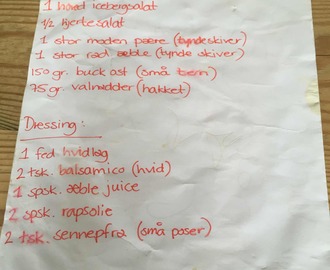 1 hoved icebergsalat
1/2 hjertesalat
1 stor moden pære (tynde skiver)
1 stor rød æble (tynde skiver)
150 gr. buck ost (små tern)
75 gr. valnødder (hakket)
Dressing:
1 fed hvidløg
2 tsk. balsamico (hvid)
1 spsk. æble juice
2 spsk. rapsolie
2 tsk. sennepfrø (små poser)